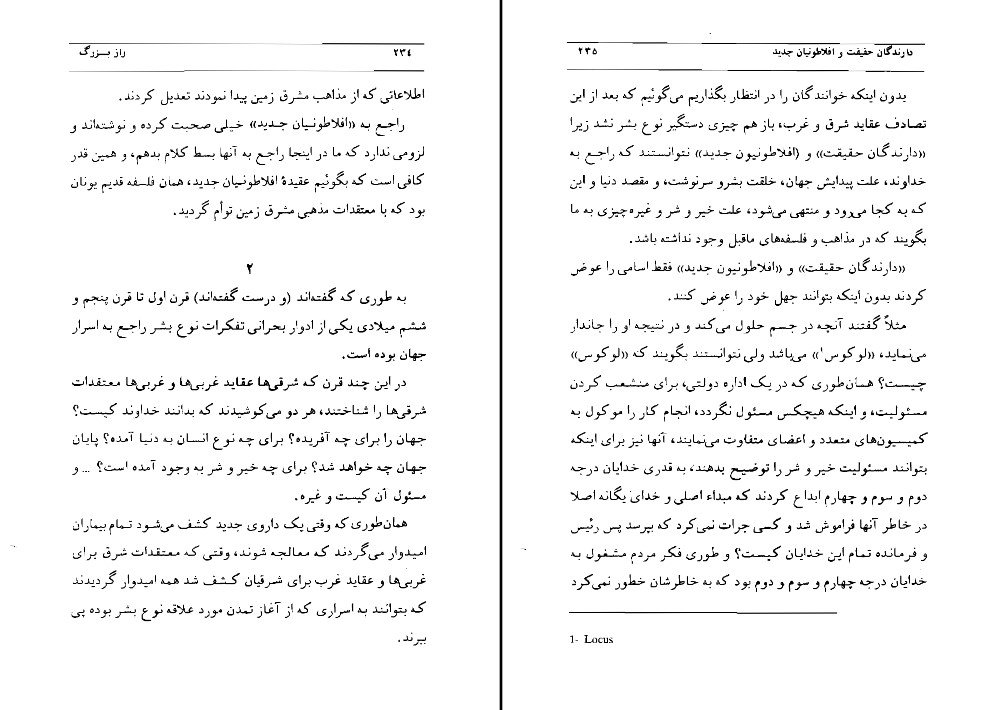 ۲۳٤ راز بـزرگ
اطلاعاتی که از مذاهب مشرق زمین پیدا نمودند تعدیل کردند.
راجع به «افلاطونیان جدید» خیلی صحبت کرده و نوشته‌اند و
لزومی ندارد که ما در اینجا راجع به آنها بسط کلام بدهم، و همین قدر
کافی است که بگوئیم عقیدهٔ افلاطونیان جدید، همان فلسفه قدیم یونان
بود که با معتقدات مذهبی مشرق زمین توأم گردید.
۲
به طوری که گفته‌اند (و درست گفته‌اند) قرن اول تا قرن پنجم و
ششم میلادی یکی از ادوار بحرانی تفکرات نوع بشر راجع به اسرار
جهان بوده است.
در این چند قرن که شرقی‌ها عقاید غربی‌ها و غربی‌ها معتقدات
شرقی‌ها را شناختند، هر دو می‌کوشیدند که بدانند خداوند کیست؟
جهان را برای چه آفریده؟ برای چه نوع انسان به دنیا آمده؟ پایان
جهان چه خواهد شد؟ برای چه خیر و شر به وجود آمده است؟ ... و
مسئول آن کیست و غیره.
همان‌طوری که وقتی یک داروی جدید کشف می‌شود تمام بیماران
امیدوار می‌گردند که معالجه شوند، وقتی که معتقدات شرق برای
غربی‌ها و عقاید غرب برای شرقیان کشف شد همه امیدوار گردیدند
که بتوانند به اسراری که از آغاز تمدن مورد علاقه نوع بشر بوده پی
ببرند.
دارندگان حقیقت و افلاطونیان جدید ۲۳۵
بدون اینکه خوانندگان را در انتظار بگذاریم می‌گوئیم که بعد از این
تصادف عقاید شرق و غرب، باز هم چیزی دستگیر نوع بشر نشد زیرا
«دارندگان حقیقت» و (افلاطونیون جدید» نتوانستند که راجع به
خداوند، علت پیدایش جهان، خلقت بشرو سرنوشت، و مقصد دنیا و این
که به کجا می‌رود و منتهی می‌شود، علت خیر و شر و غیره چیزی به ما
بگویند که در مذاهب و فلسفه‌های ماقبل وجود نداشته باشد.
«دارندگان حقیقت» و «افلاطونیون جدید» فقط اسامی را عوض
کردند بدون اینکه بتوانند جهل خود را عوض کنند.
مثلاً گفتند آنچه در جسم حلول می‌کند و در نتیجه او را جاندار
می‌نماید، «لوکوس۱» می‌باشد ولی نتوانستند بگویند که «لوکوس»
چیست؟ همان‌طوری که در یک اداره دولتی، برای منشعب کردن
مسئولیت، و اینکه هیچکس مسئول نگردد، انجام کار را موکول به
کمیسیون‌های متعدد و اعضای متفاوت می‌نمایند، آنها نیز برای اینکه
بتوانند مسئولیت خیر و شر را توضیح بدهند، به قدری خدایان درجه
دوم و سوم و چهارم ابداع کردند که مبداء اصلی و خدای یگانه اصلا
در خاطر آنها فراموش شد و کسی جرات نمی‌کرد که بپرسد پس رئیس
و فرمانده تمام این خدایان کیست؟ و طوری فکر مردم مشغول به
خدایان درجه چهارم و سوم و دوم بود که به خاطرشان خطور نمی‌کرد
1- Locus